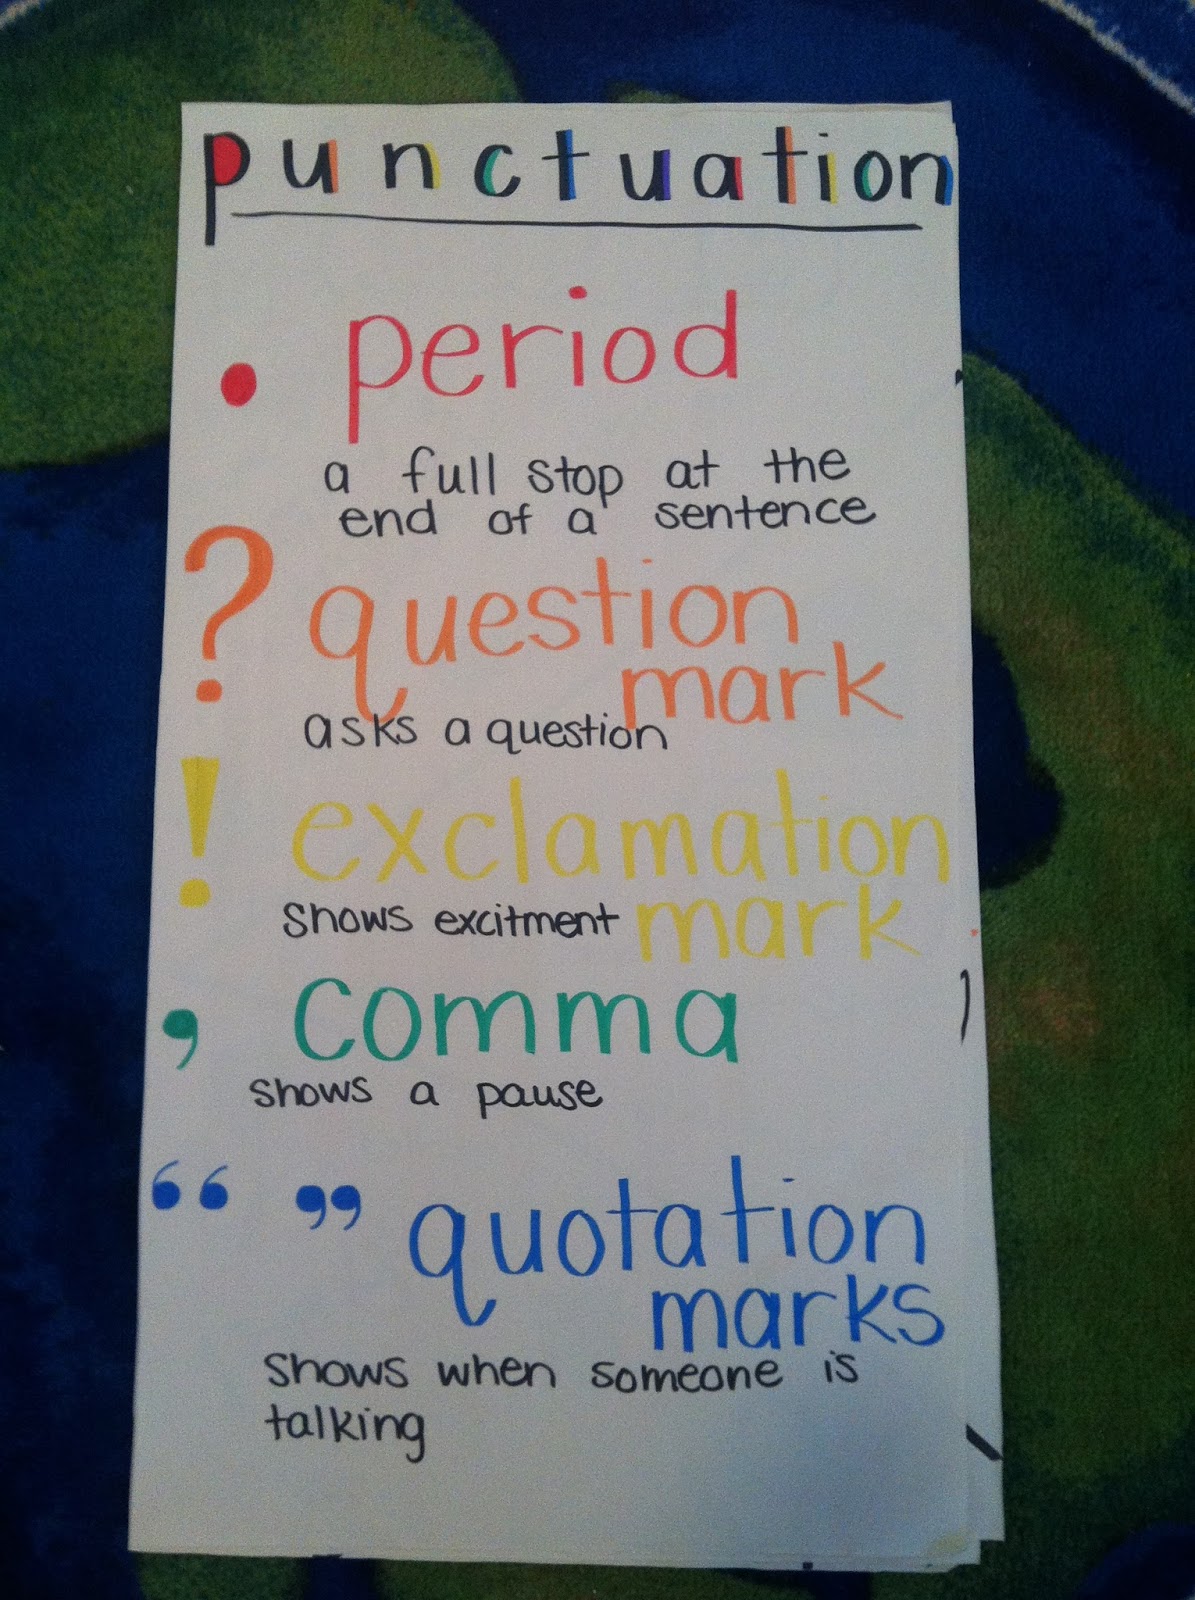 punctuation
. period
a full stop at the
end of a sentence
? question
mark
asks a question
! exclamation
mark
shows excitment
, comma
shows a pause
“ ” quotation
marks
shows when someone is
talking